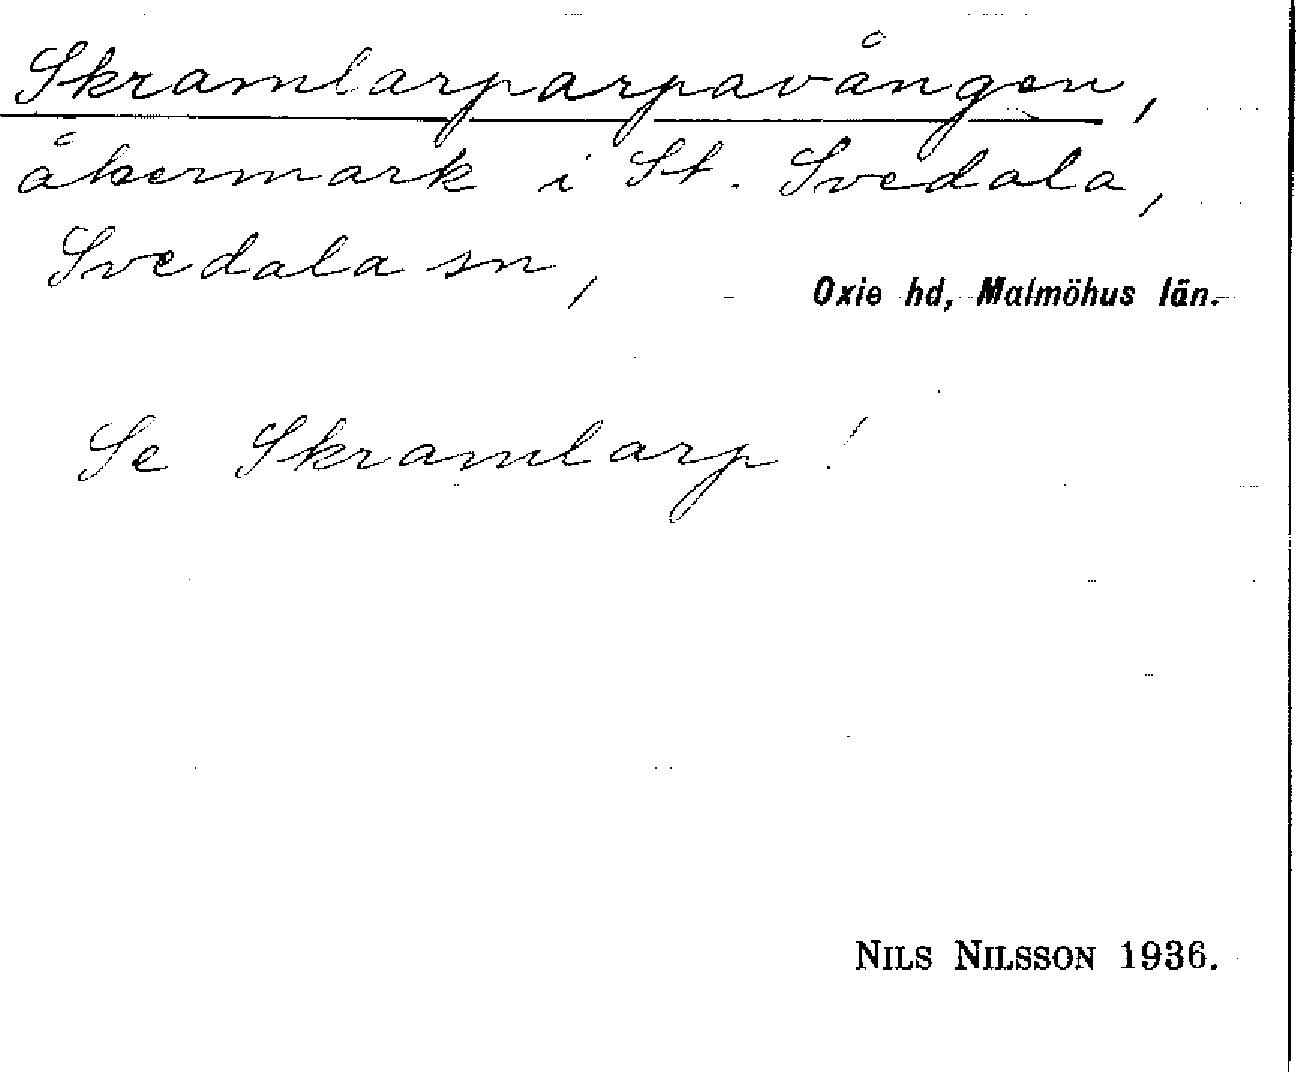 Skramlarparpavången,
åkermark i St. Svedala,
Svedala sn,
Oxie hd, Malmöhus län.
Se Skramlarp!
NILS NILSSON 1936.